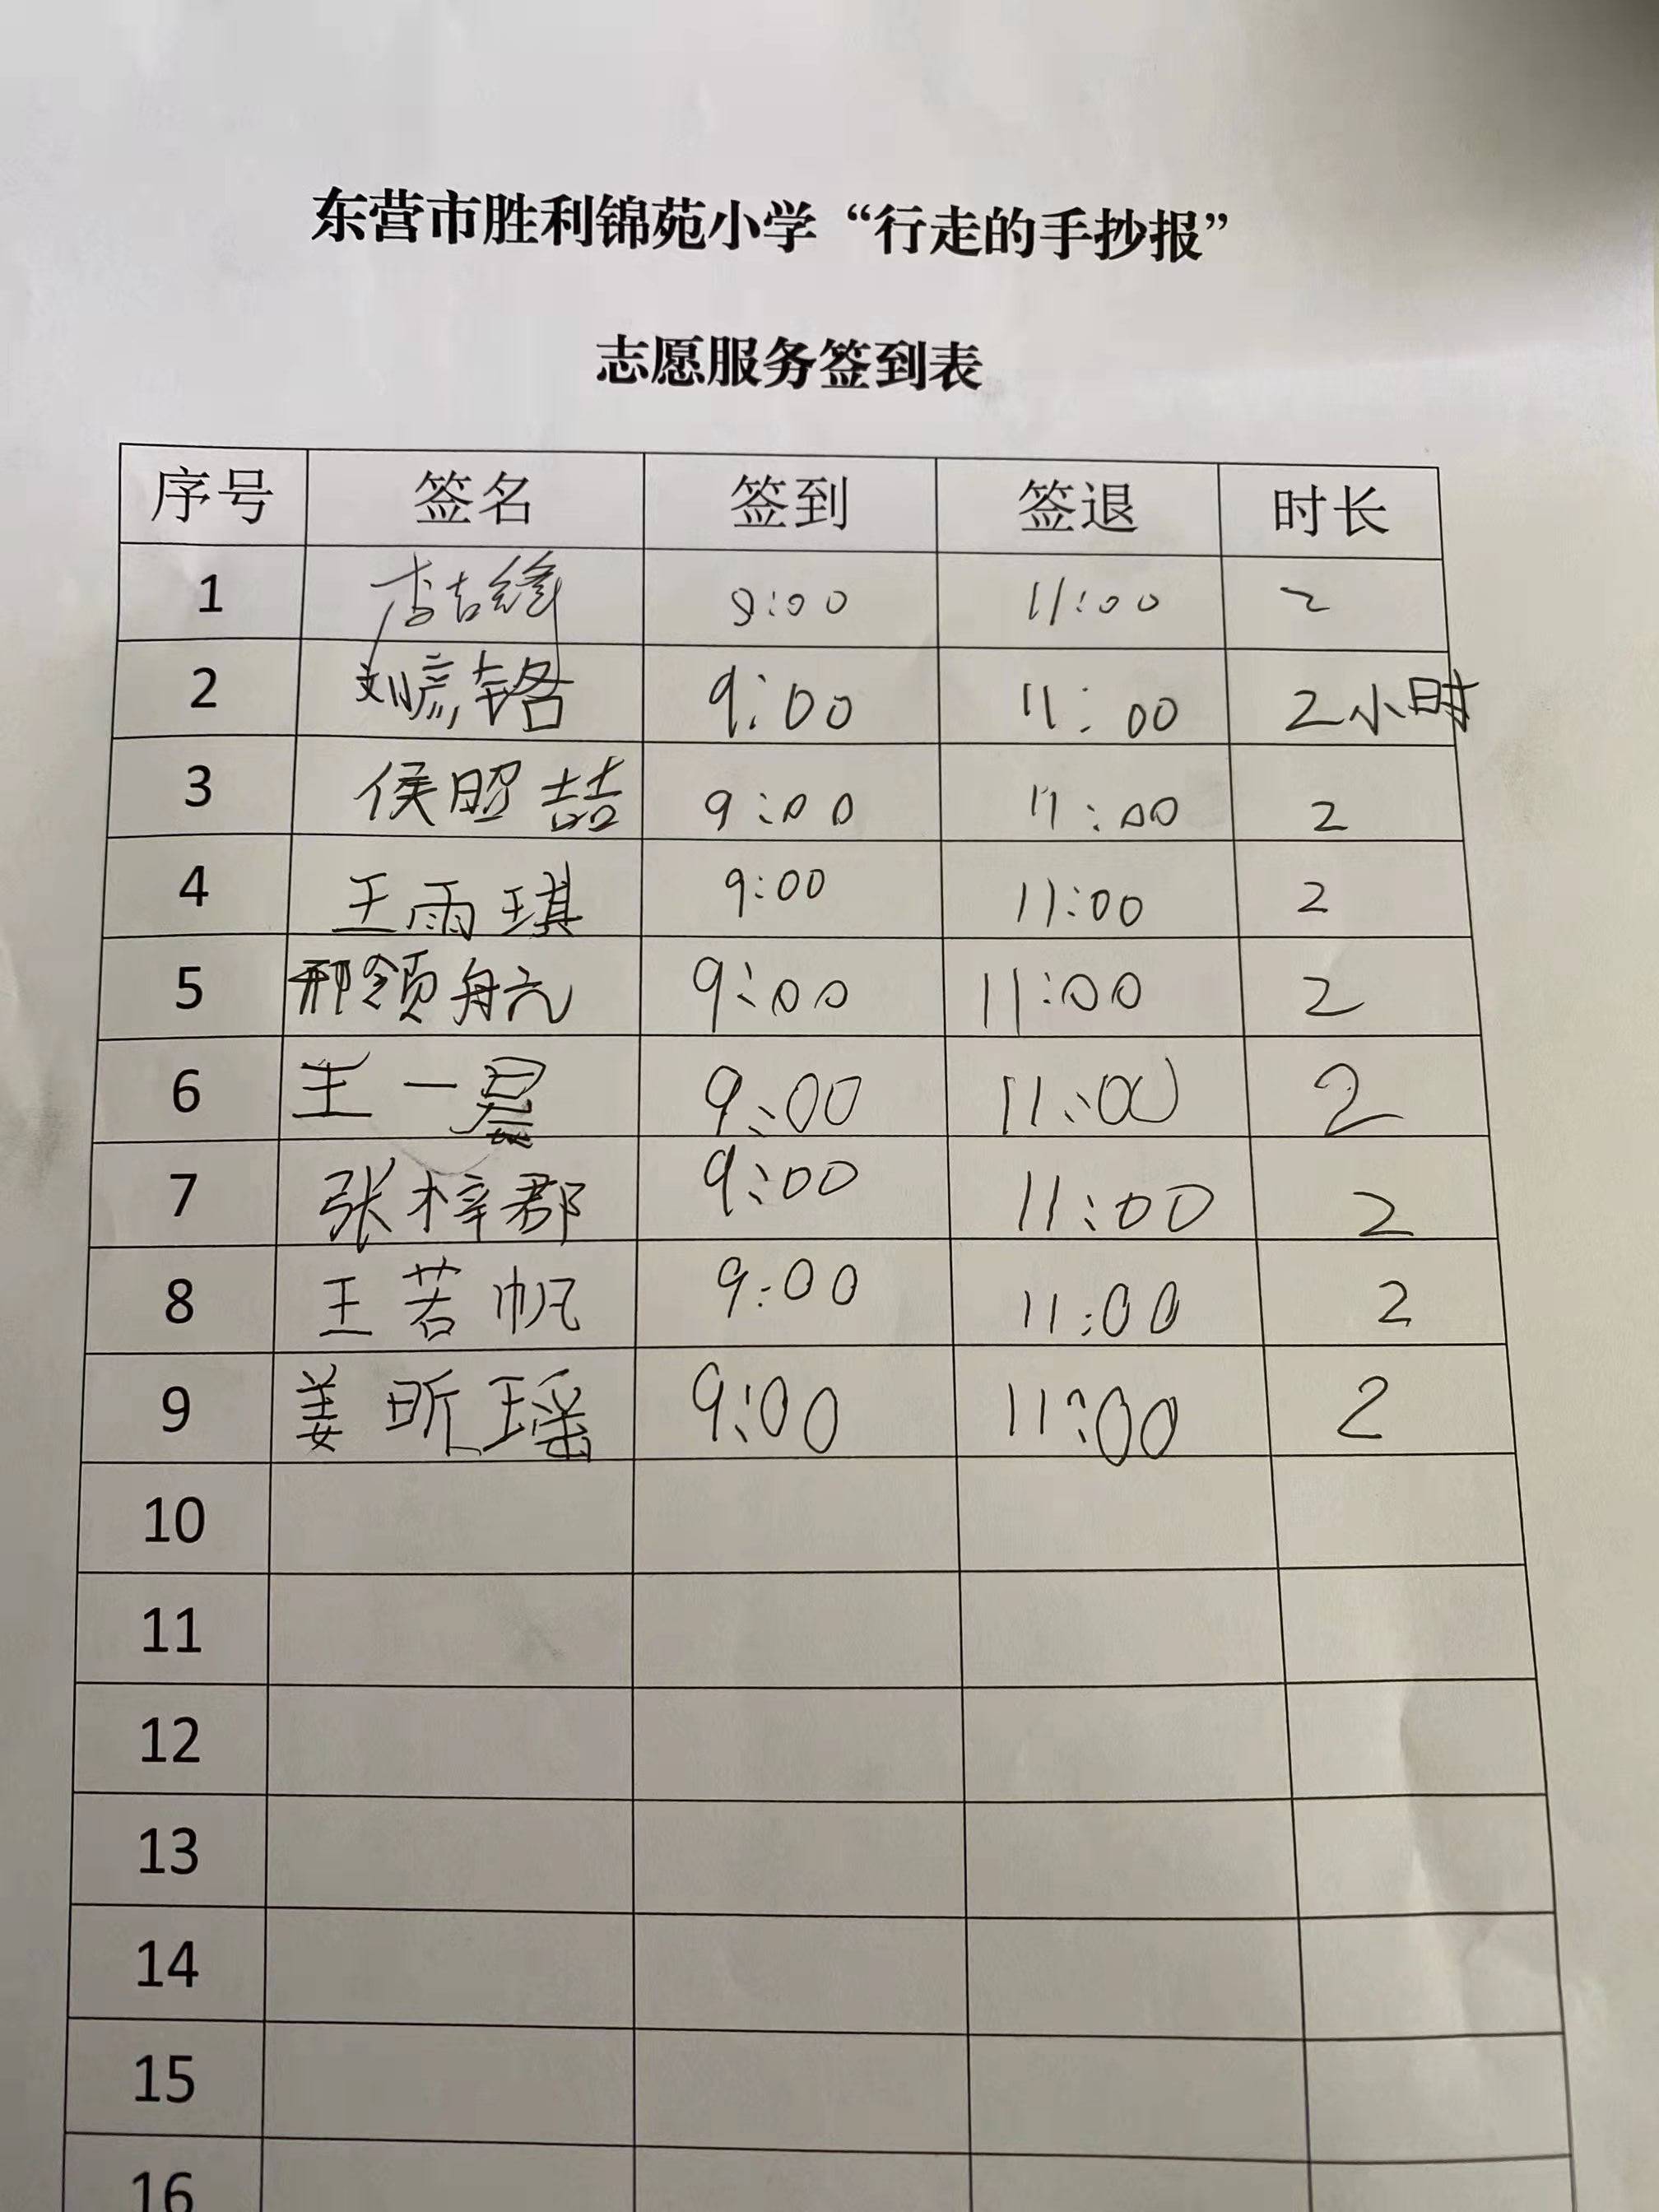 东营市胜利锦苑小学“行走的手抄报”
志愿服务签到表
序号 签名 签到 签退 时长
1 9:00 11:00 2
2 刘彦辂 9:00 11:00 2小时
3 侯昭喆 9:00 11:00 2
4 王雨琪 9:00 11:00 2
5 邢领航 9:00 11:00 2
6 王一 9:00 11:00 2
7 张梓郡 9:00 11:00 2
8 王若帆 9:00 11:00 2
9 姜昕瑶 9:00 11:00 2
10
11
12
13
14
15
16